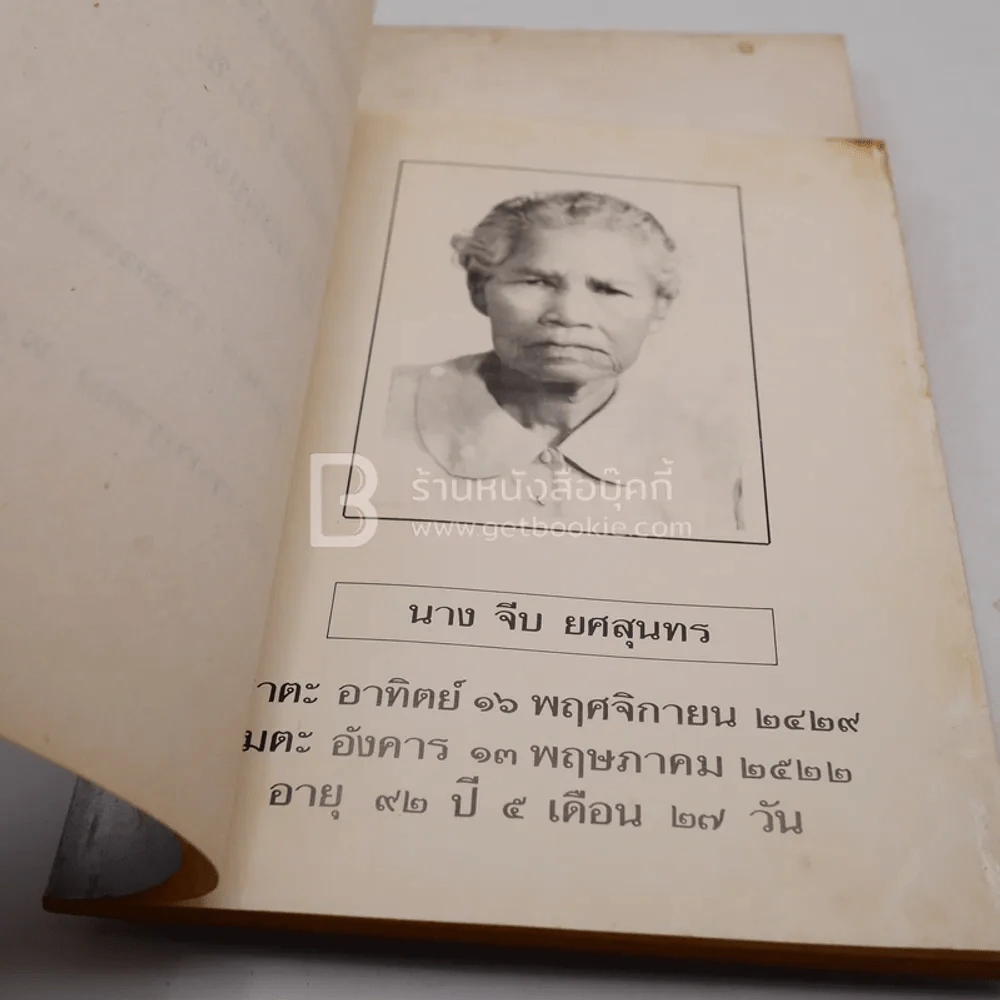 ร้านหนังสือบุ๊คกี้
www.getbookie.com
นาง จีบ ยศสุนทร
าตะ อาทิตย์ ๑๖ พฤศจิกายน ๒๔๒๙
มตะ อังคาร ๑๓ พฤษภาคม ๒๕๒๒
อายุ ๙๒ ปี ๕ เดือน ๒๗ วัน